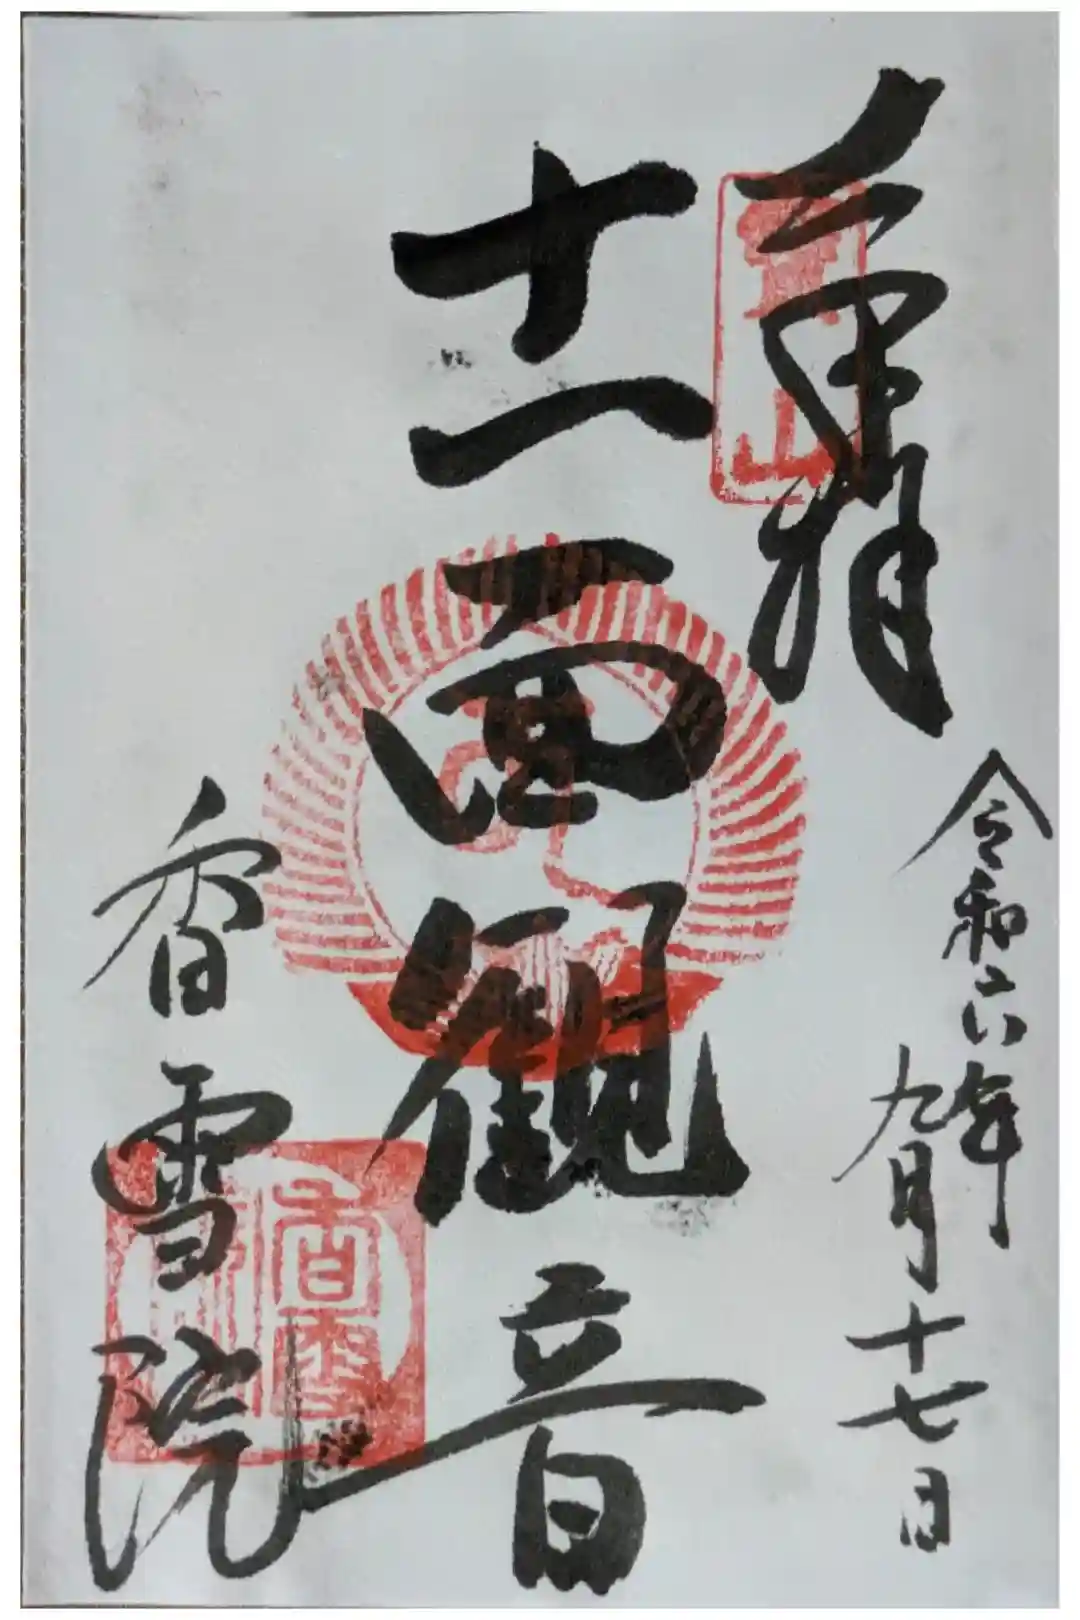 奉拝
令和六年
九月十七日
十一面観音
香雪院